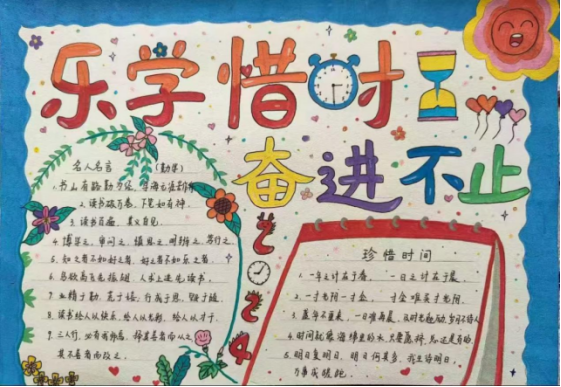 乐学惜时
奋进不止
名人名言 (勤学)
1. 书山有路勤为径，学海无涯
2. 读书破万卷，下笔如有神。
3. 读书百遍，其义自见
4. 博学之，审问之，慎思之，明辨之，笃行之。
5. 知之者不如好之者，好之者不如乐之者。
6. 鸟欲高飞先振翅，人求上进先读书。
7. 业精于勤，荒于嬉，行成于思，毁于随
8. 读书给人以快乐，给人以光彩，给人以才干。
9. 三人行，必有我师焉，择其善者而从之
其不善者而改之。
2024
珍惜时间
1. 一年之计在于春，一日之计在于晨
2. 一寸光阴一寸金，寸金难买寸光阴。
3. 盛年不重来，一日难再晨，及时当勉励，岁月不待人
4. 时间就像海绵里的水，只要愿挤，总还是有的。
5. 明日复明日，明日何其多，我生待明日，
万事成蹉跎